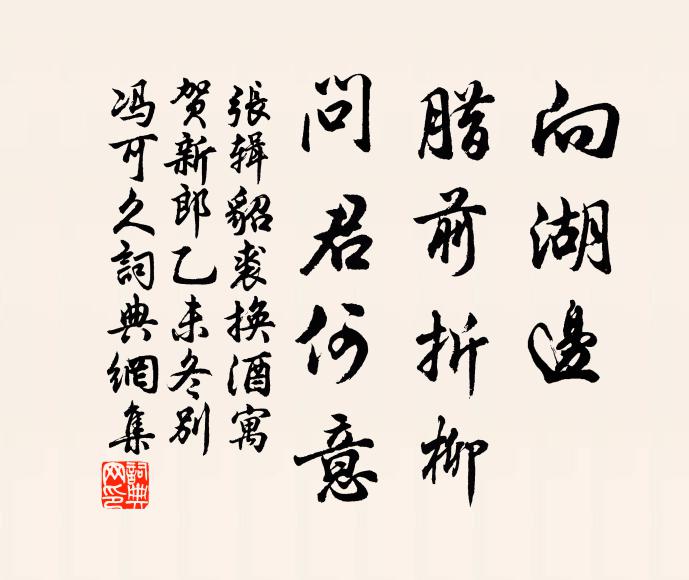 向湖邊
腊前折柳
問君何意
張辑貂裘换酒寓
贺新郎乙未冬别
冯可久詞典網集
詞典网印